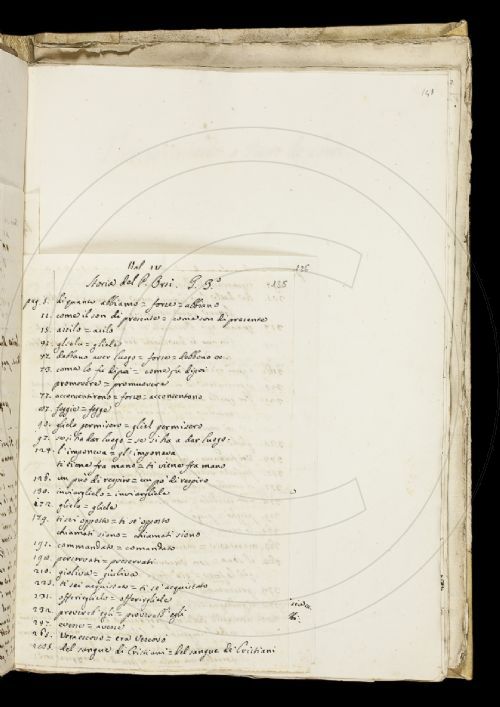 141
Vol. IV
Storia del P. Orsi. G. B.º
pag. 5. di quanto abbiamo = forse = abbiano
11. come il son di presente = come son di presente
15. asilo = asilo
gliela = gliele
72. debbano aver luogo = forse = debbono ec.
73. come lo fu dipoi = come fu dipoi
promovere = promuovere
77. acconsentirono = forse = acconsentono
87. foggie = fogge
90. gielo permisero = gliel permisero
97. se si ha dar luogo = se si ha a dar luogo
124. l'imponeva = gl'imponeva
ti tiene fra mano = ti viene fra mano
128. un può di respiro = un pò di respiro
130. inviarglielo = inviargliela
172. glielo = gliele
179. ti sei opposto = ti se opposto
chiamati siono = chiamati sieno
191. commandato = comandato
198. perservati = preservati
210. gioliva = giuliva
225. ti sei acquistato = ti se' acquistato
231. offeriglielo = offerigliele
292. provveed' egli = provved' egli
297. avesse = avesse
285. Veraescovo = era Vescovo
208. del sangue di Cristiani = del sangue de Cristiani